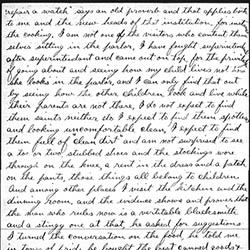 repair a watch" says an old proverb and that applies to
me and the new heads of this institution, for in
the cooking, I am not one of the visitors who content them
selves sitting in the parlor, I have fought superintend
after superintendent and came out on top, for the priv
of going about and seeing how my child lives not
looks in the parlor, and I can only find that out
by seeing how the other children look and live while
their parents are not there, I do not expect to find
them saints neither do I expect to find them spotless
and looking uncomfortable clean, I expect to find
them full of clean dirt and am not surprised to see
a to or two stubbed shoes and the stockings worn
through on the knee, a rent in the dress and a patch
on the pants, those things all belong to children.
And among other places I visit the kitchen and the
dining room, and the evidence shows and proves that
the man who rules now is a veritable blacksmith,
and a stingy one at that he asked for suggestions
I turned the conversation on the food, he told me
in tone of pride he bought the best canned goods